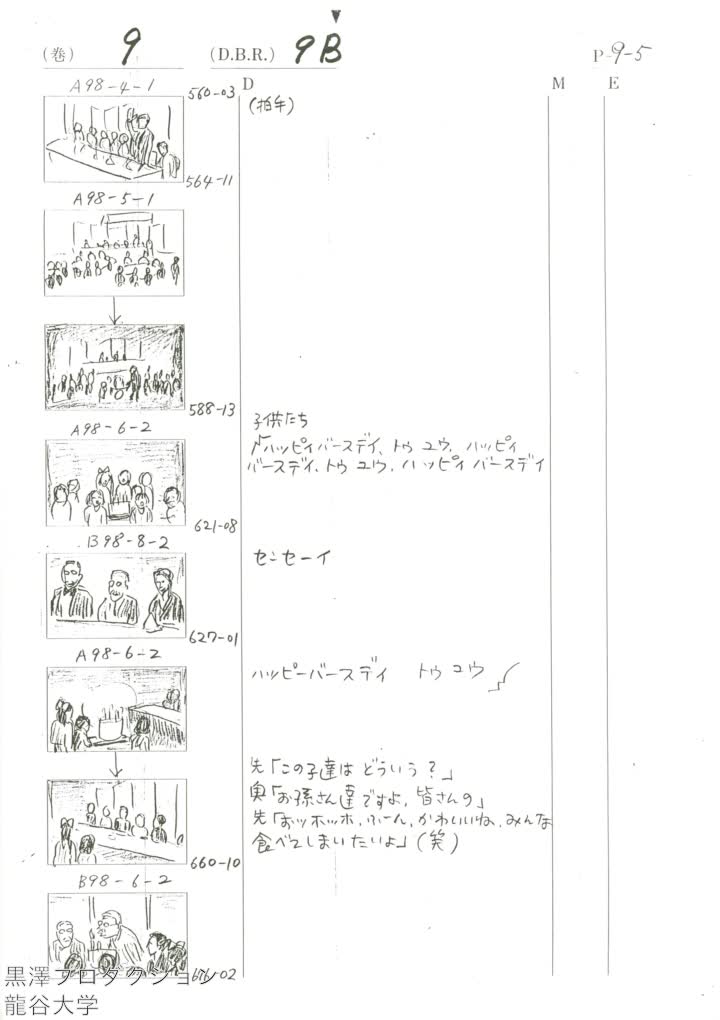 (巻) 9 (D.B.R.) 9B P-9-5
D M E
A98-4-1
560-03
(拍手)
564-11
A98-5-1
588-13
子供たち
A98-6-2
「ハッピィバースデイ、トゥ ユウ、ハッピィ
バースデイ、トゥ ユウ、ハッピィ バースデイ
621-08
B98-8-2
センセーイ
627-01
A98-6-2
ハッピーバースデイ トゥ ユウ
先「この子達は どういう?」
奥「お孫さん達ですよ、皆さんの」
先「おッホッホ、ふーん、かわいいね、みんな
食べてしまいたいよ」(笑)
660-10
B98-6-2
676-02
黒澤プロダクション
龍谷大学